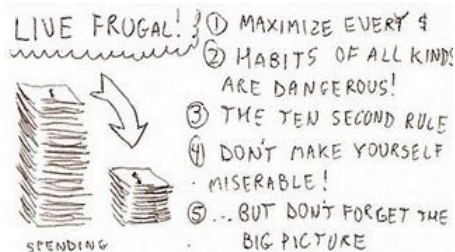 LIVE FRUGAL!
① MAXIMIZE EVERY $
② HABITS OF ALL KINDS
ARE DANGEROUS!
③ THE TEN SECOND RULE
④ DON'T MAKE YOURSELF
MISERABLE!
⑤ ...BUT DON'T FORGET THE
BIG PICTURE
$
$
SPENDING